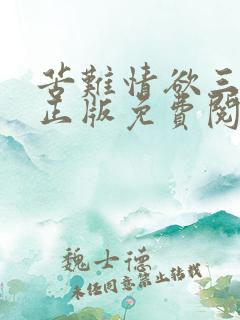 苦難情欲三
正版免費閱
魏士德
未经同意禁止转载